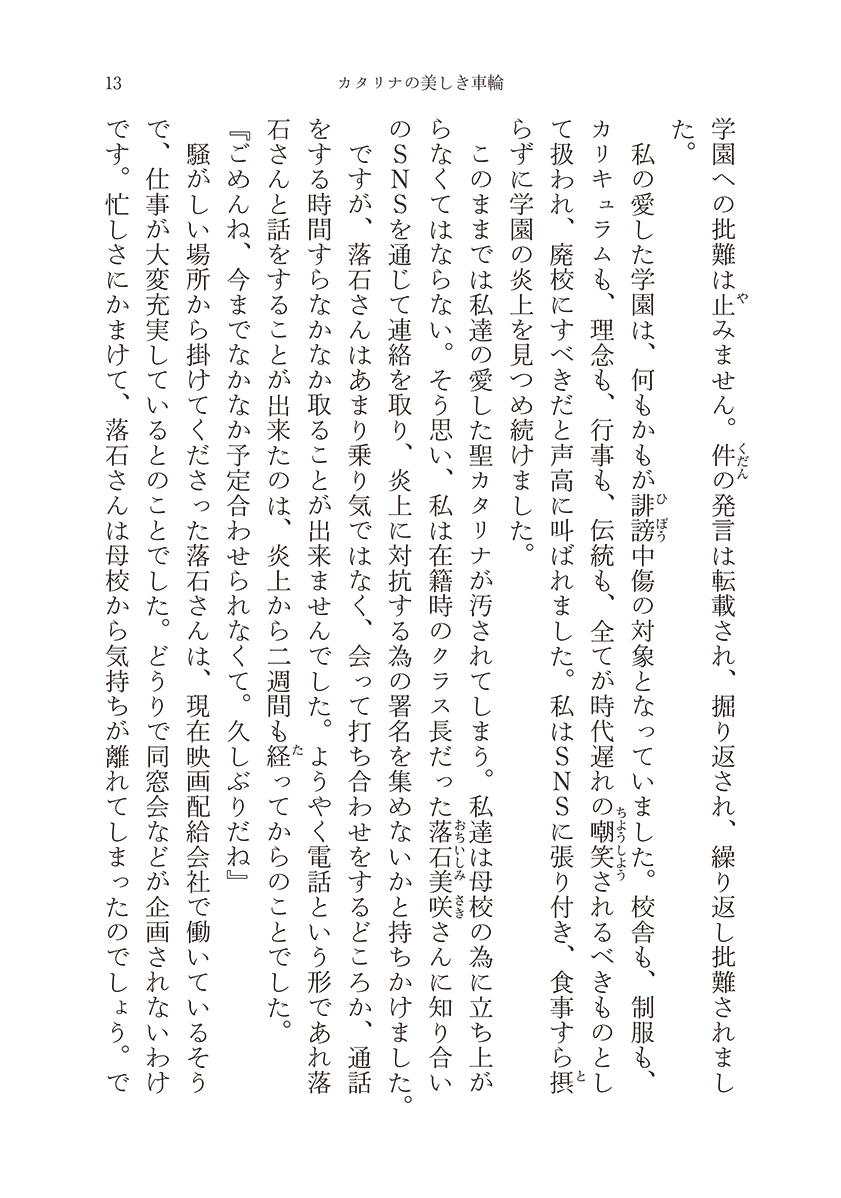 13
カタリナの美しき車輪
学園への批難は止みません。件の発言は転載され、掘り返され、繰り返し批難されまし
た。
　私の愛した学園は、何もかもが誹謗中傷の対象となっていました。校舎も、制服も、
カリキュラムも、理念も、行事も、伝統も、全てが時代遅れの嘲笑されるべきものとし
て扱われ、廃校にすべきだと声高に叫ばれました。私はSNSに張り付き、食事すら摂
らずに学園の炎上を見つめ続けました。
　このままでは私達の愛した聖カタリナが汚されてしまう。私達は母校の為に立ち上が
らなくてはならない。そう思い、私は在籍時のクラス長だった落石美咲さんに知り合い
のSNSを通じて連絡を取り、炎上に対抗する為の署名を集めないかと持ちかけました。
　ですが、落石さんはあまり乗り気ではなく、会って打ち合わせをするどころか、通話
をする時間すらなかなか取ることが出来ませんでした。ようやく電話という形であれ落
石さんと話をすることが出来たのは、炎上から二週間も経ってからのことでした。
『ごめんね、今までなかなか予定合わせられなくて。久しぶりだね』
　騒がしい場所から掛けてくださった落石さんは、現在映画配給会社で働いているそう
で、仕事が大変充実しているとのことでした。どうりで同窓会などが企画されないわけ
です。忙しさにかまけて、落石さんは母校から気持ちが離れてしまったのでしょう。で